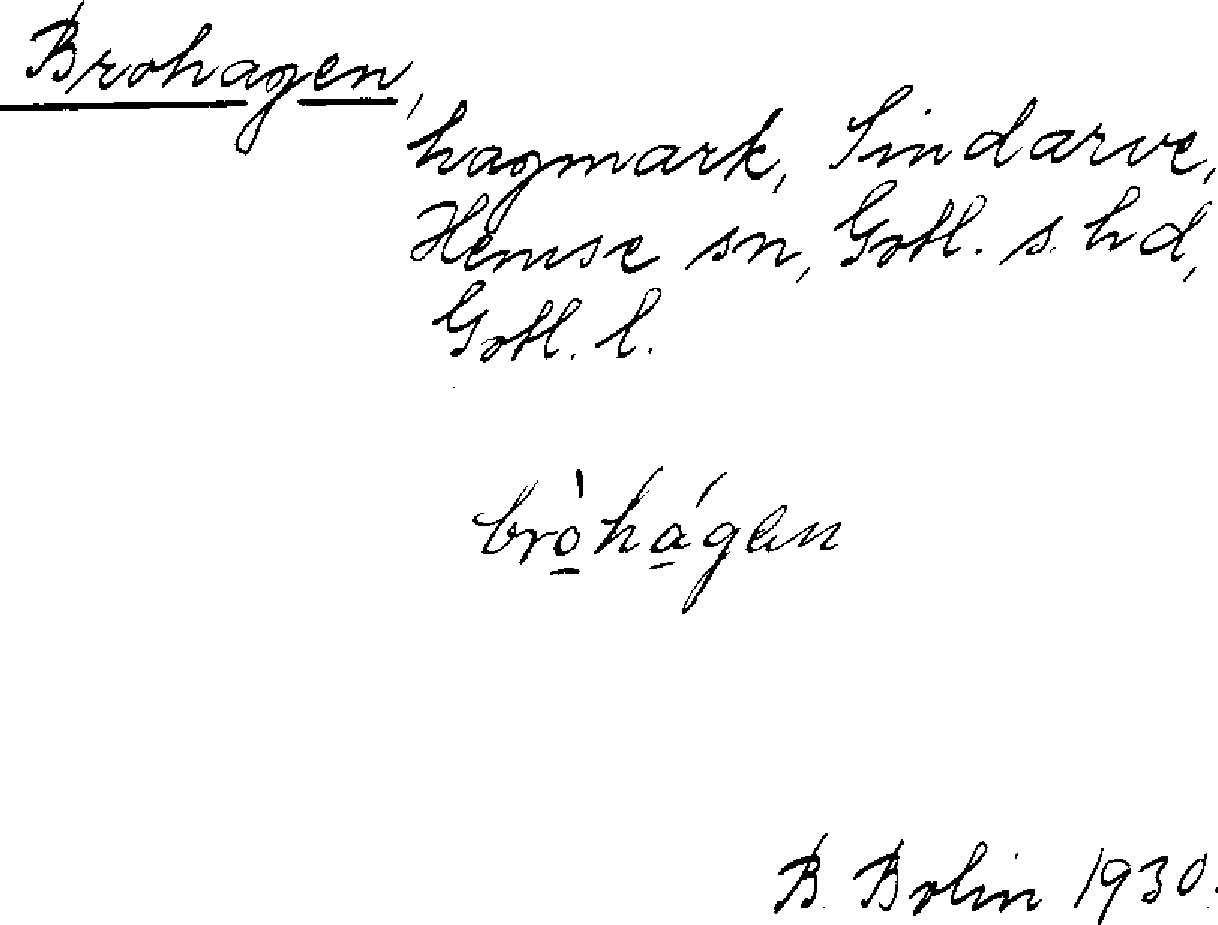 Brohagen,
hagmark, Sindarve,
Hemse sn, Gotl. s. hd,
Gotl. l.
brò̲há̲gen
B. Bolin 1930.